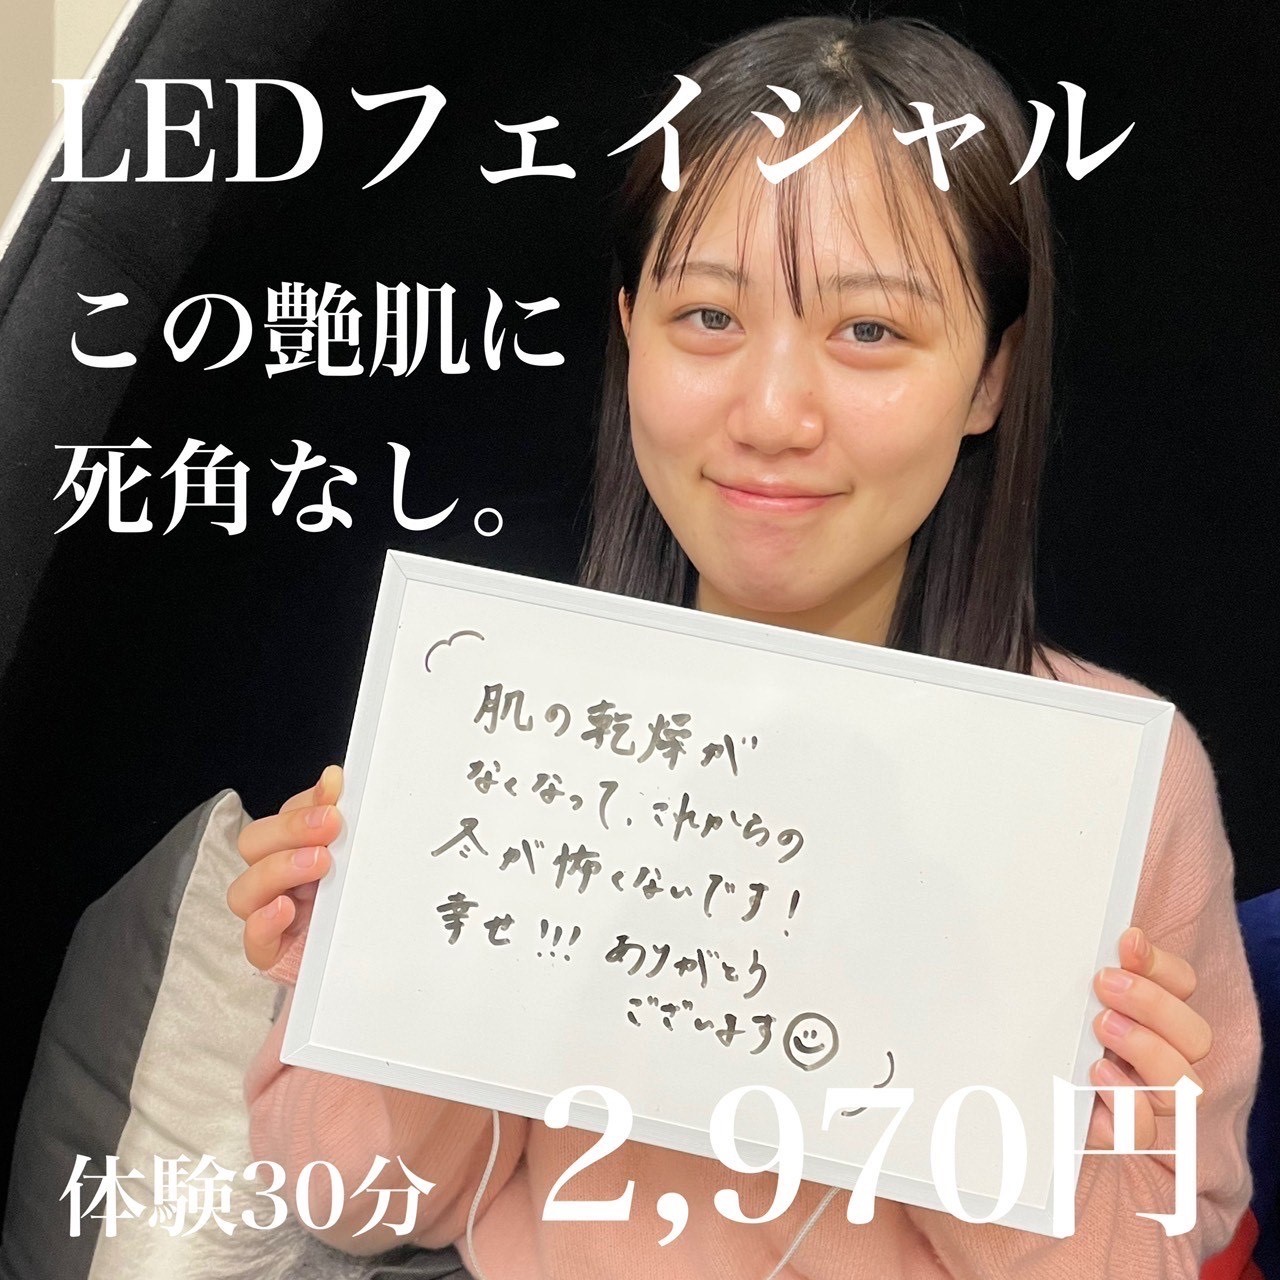 LEDフェイシャル
この艶肌に
死角なし。
肌の乾燥が
なくなって、これからの
冬が怖くないです!
幸せ!!! ありがとう
ございます
体験30分 2,970円